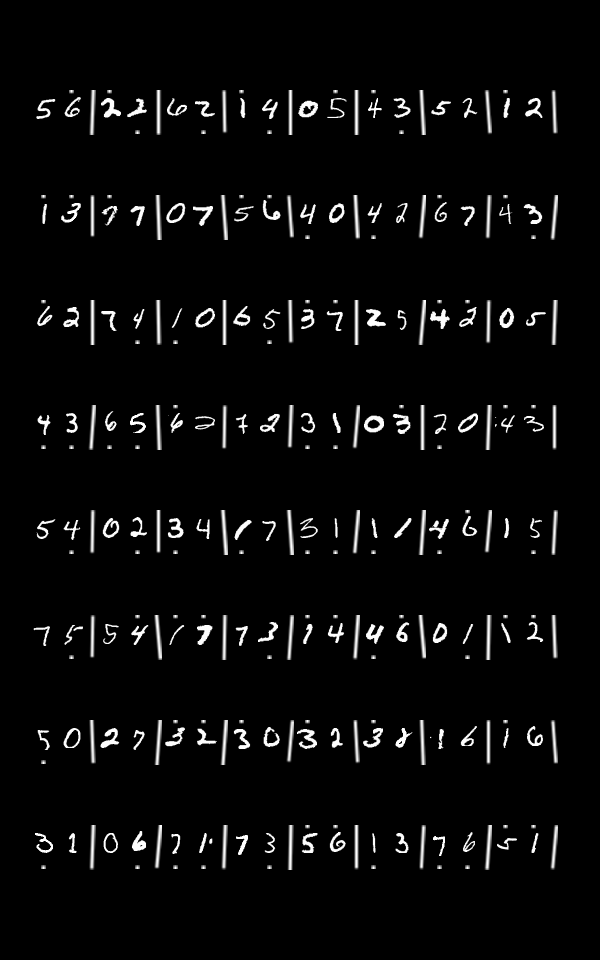 5 6 | 2 2 | 6 2 | 1 4 | 0 5 | 4 3 | 5 2 | 1 2 |
1 3 | 7 7 | 0 7 | 5 6 | 4 0 | 4 2 | 6 7 | 4 3 |
6 2 | 7 4 | 1 0 | 6 5 | 3 7 | 2 5 | 4 2 | 0 5 |
4 3 | 6 5 | 6 2 | 7 2 | 3 1 | 0 3 | 2 0 | 4 3 |
5 4 | 0 2 | 3 4 | 1 7 | 3 1 | 1 1 | 4 6 | 1 5 |
7 5 | 5 4 | 1 7 | 7 3 | 1 4 | 4 6 | 0 1 | 1 2 |
5 0 | 2 7 | 3 2 | 3 0 | 3 2 | 3 8 | 1 6 | 1 6 |
3 1 | 0 6 | 7 1 | 7 3 | 5 6 | 1 3 | 7 6 | 5 1 |